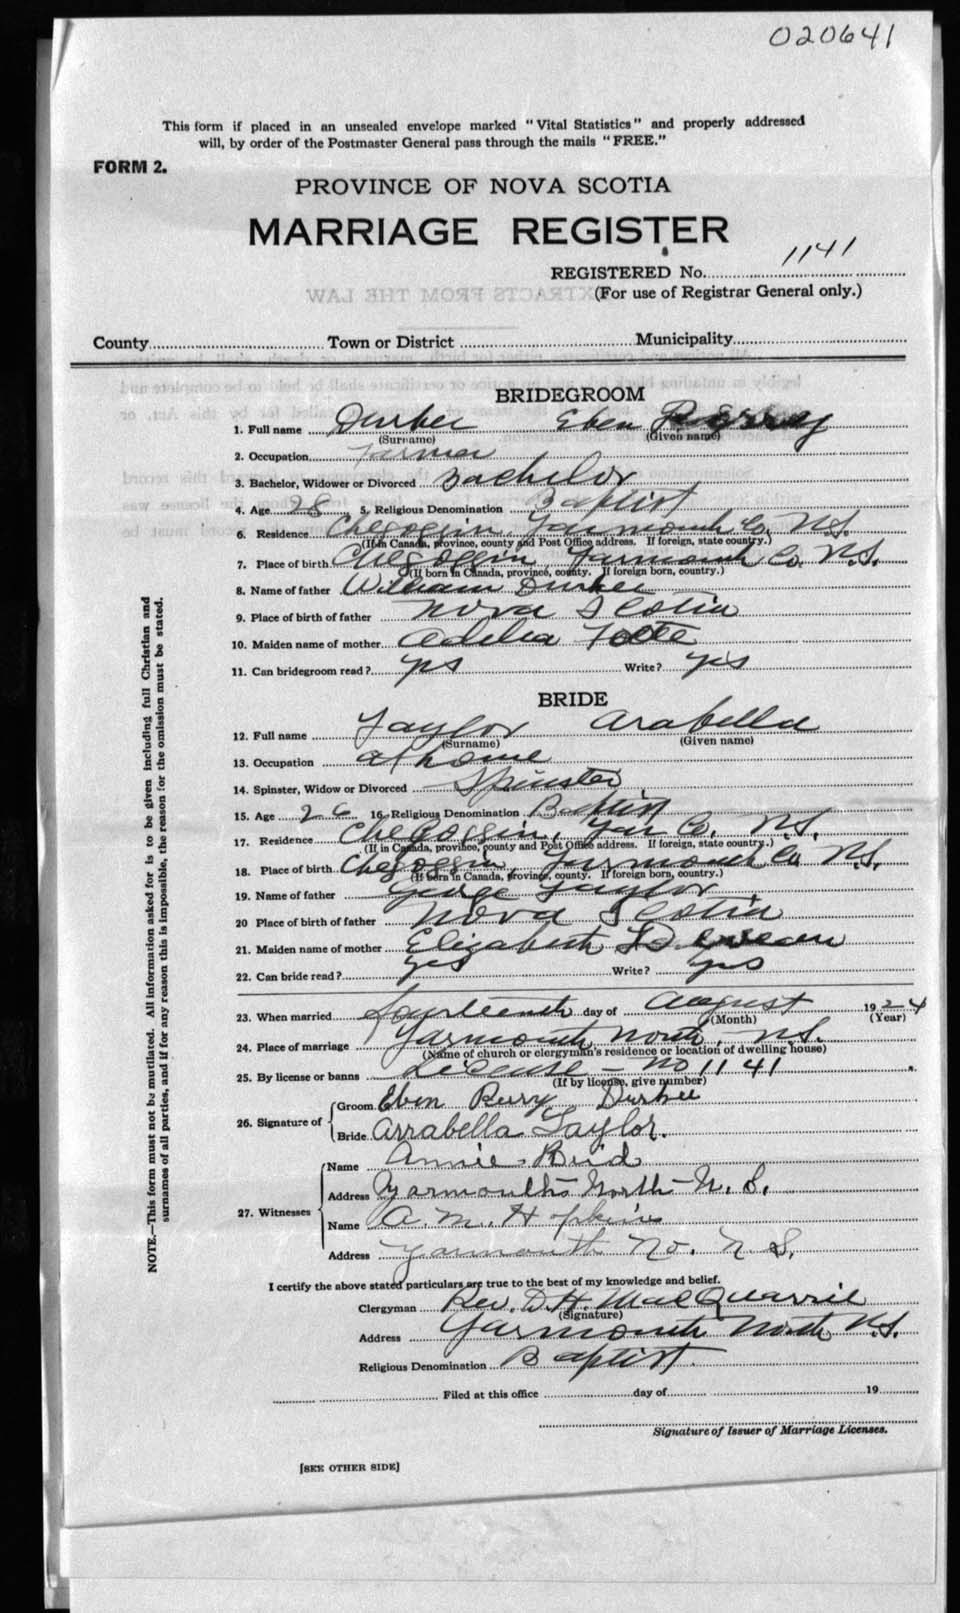 020641
This form if placed in an unsealed envelope marked "Vital Statistics" and properly addressed
will, by order of the Postmaster General pass through the mails "FREE."
FORM 2.
PROVINCE OF NOVA SCOTIA
MARRIAGE REGISTER
REGISTERED No. 1141
(For use of Registrar General only.)
EXTRACTS FROM THE LAW
County Town or District Municipality
BRIDEGROOM
1. Full name Durkee Eben
(Surname) (Given name)
2. Occupation Farmer
3. Bachelor, Widower or Divorced Bachelor
4. Age 28 5. Religious Denomination Baptist
6. Residence Chegoggin, Yarmouth Co. N.S.
(If in Canada, province, county and Post Office address. If foreign, state country.)
7. Place of birth Chegoggin Yarmouth Co N.S.
(If born in Canada, province, county. If foreign born, country.)
8. Name of father William Durkee
9. Place of birth of father Nova Scotia
10. Maiden name of mother Adelia
11. Can bridegroom read? yes Write? yes
BRIDE
12. Full name Taylor Arabella
(Surname) (Given name)
13. Occupation at home
14. Spinster, Widow or Divorced Spinster
15. Age 26 16. Religious Denomination Baptist
17. Residence Chegoggin, Yar Co. N.S.
(If in Canada, province, county and Post Office address. If foreign, state country.)
18. Place of birth Chegoggin, Yarmouth Co N.S.
(If born in Canada, province, county. If foreign born, country.)
19. Name of father George Taylor
20 Place of birth of father Nova Scotia
21. Maiden name of mother Elizabeth
22. Can bride read? yes Write? yes
23. When married fourteenth day of August 1924
(Month) (Year)
24. Place of marriage Yarmouth North, N.S.
(Name of church or clergyman's residence or location of dwelling house)
25. By license or banns License - No 1141
(If by license, give number)
26. Signature of
Groom Eben Perry Durkee
Bride Arrabella Taylor.
27. Witnesses
Name Annie Reid
Address Yarmouth North N.S.
Name A. M. Hopkins
Address Yarmouth No. N.S.
I certify the above stated particulars are true to the best of my knowledge and belief.
Clergyman Rev. D. H. MacQuarrie
(Signature)
Address Yarmouth North N.S.
Religious Denomination Baptist.
Filed at this office day of 19
Signature of Issuer of Marriage Licenses.
[SEE OTHER SIDE]
NOTE.—This form must not be mutilated. All information asked for is to be given including full Christian and
surnames of all parties, and if for any reason this is impossible, the reason for the omission must be stated.